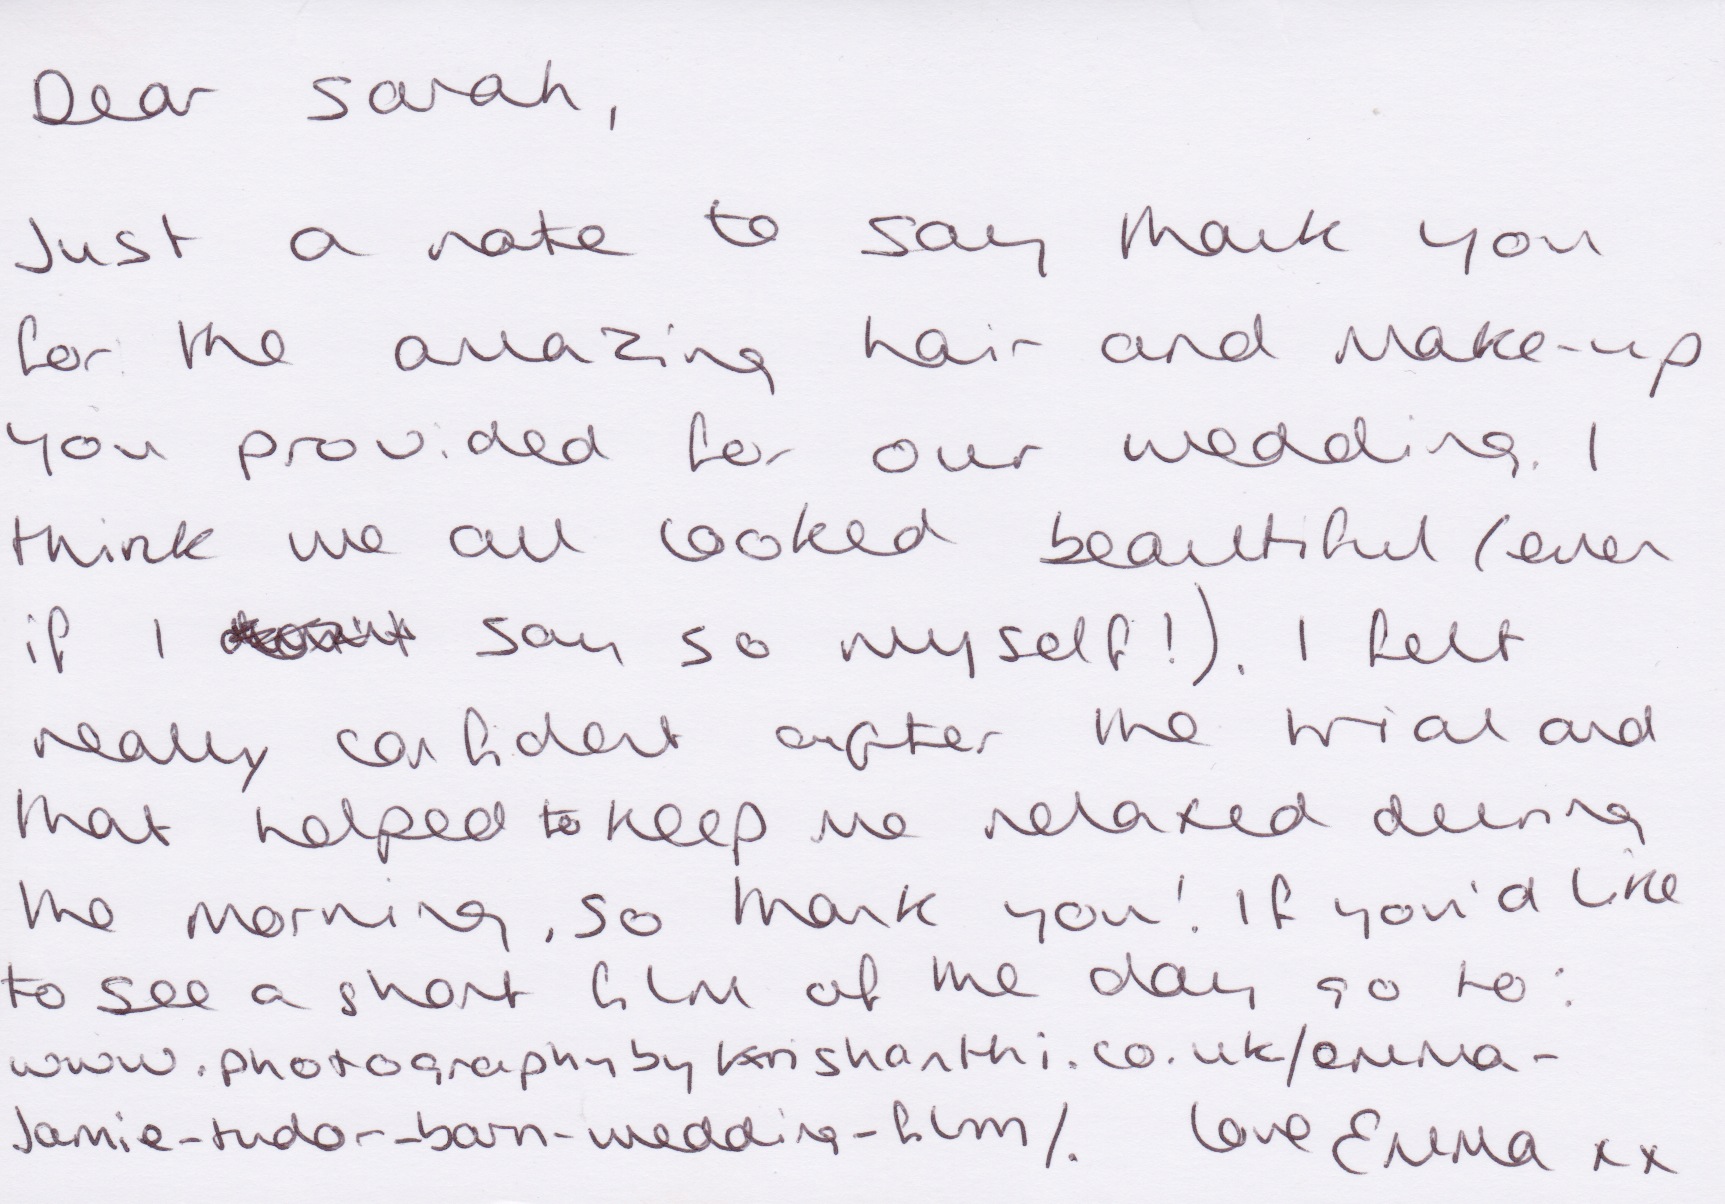 Dear Sarah,
Just a note to say thank you
for the amazing hair and make-up
you provided for our wedding. I
think we all looked beautiful (even
if I say so myself!). I felt
really confident after the trial and
that helped to keep me relaxed during
the morning, so thank you! If you'd like
to see a short film of the day go to:
www.photographybykrishanthi.co.uk/emma-
jamie-tudor-barn-wedding-film/. Love Emma xx